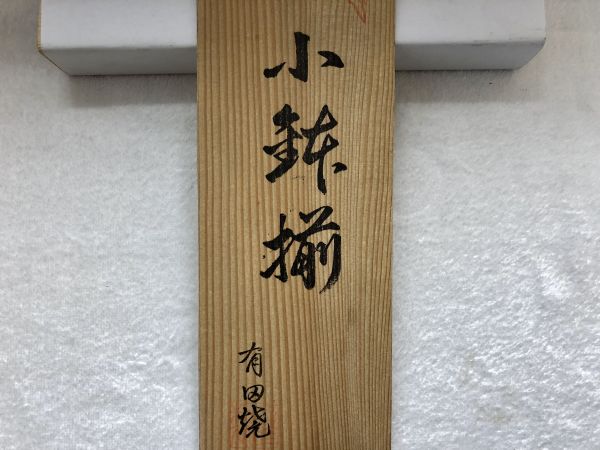 小鉢揃
有田焼